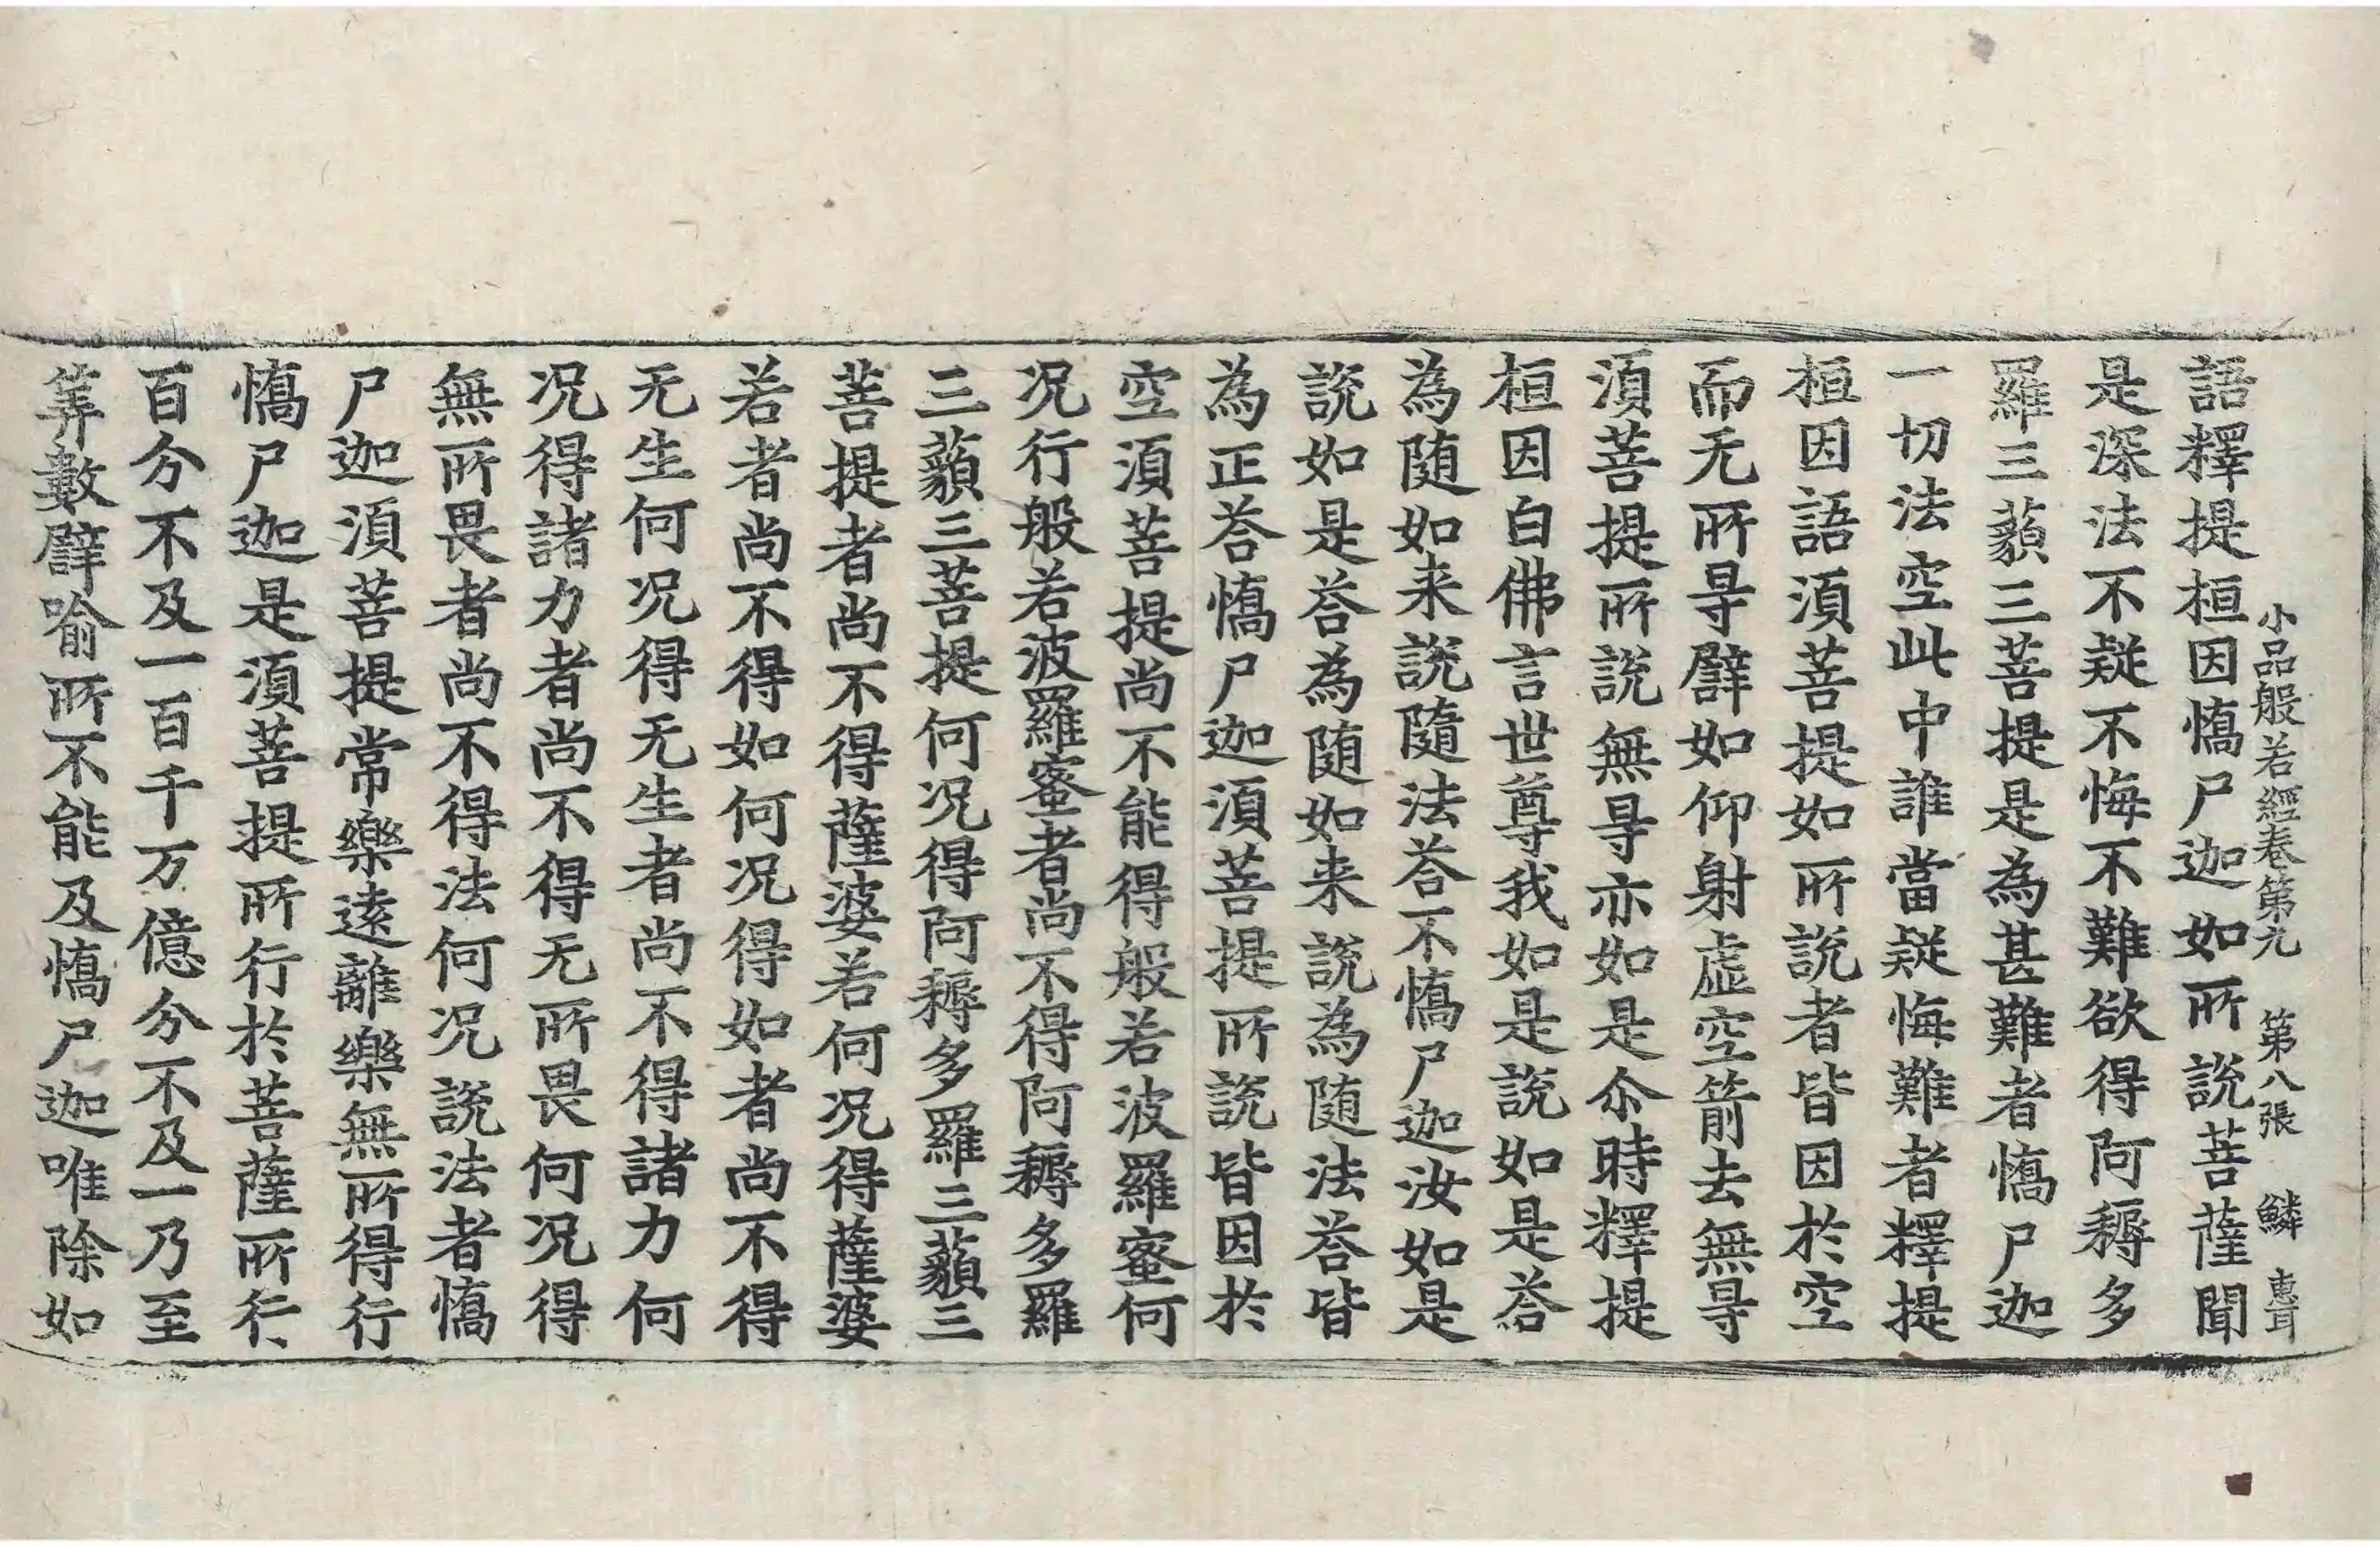 小品般若經卷第九　第八張　鱗　惠耳
語釋提桓因憍尸迦如所說菩薩聞
是深法不疑不悔不難欲得阿耨多
羅三藐三菩提是為甚難者憍尸迦
一切法空此中誰當疑悔難者釋提
桓因語湏菩提如所說者皆因於空
而无所㝵譬如仰射虛空箭去無㝵
湏菩提所說無㝵亦如是尒時釋提
桓因白佛言世尊我如是說如是荅
為随如来說隨法荅不憍尸迦汝如是
說如是荅為随如来說為随法荅皆
為正荅憍尸迦湏菩提所說皆因於
空湏菩提尚不能得般若波羅蜜何
况行般若波羅蜜者尚不得阿耨多羅
三藐三菩提何况得阿耨多羅三藐三
菩提者尚不得薩婆若何况得薩婆
若者尚不得如何况得如者尚不得
无生何况得无生者尚不得諸力何
况得諸力者尚不得无所畏何况得
無所畏者尚不得法何况說法者憍
尸迦湏菩提常樂遠離樂無所得行
憍尸迦是湏菩提所行於菩薩所行
百分不及一百千万億分不及一乃至
筭數譬喻所不能及憍尸迦唯除如